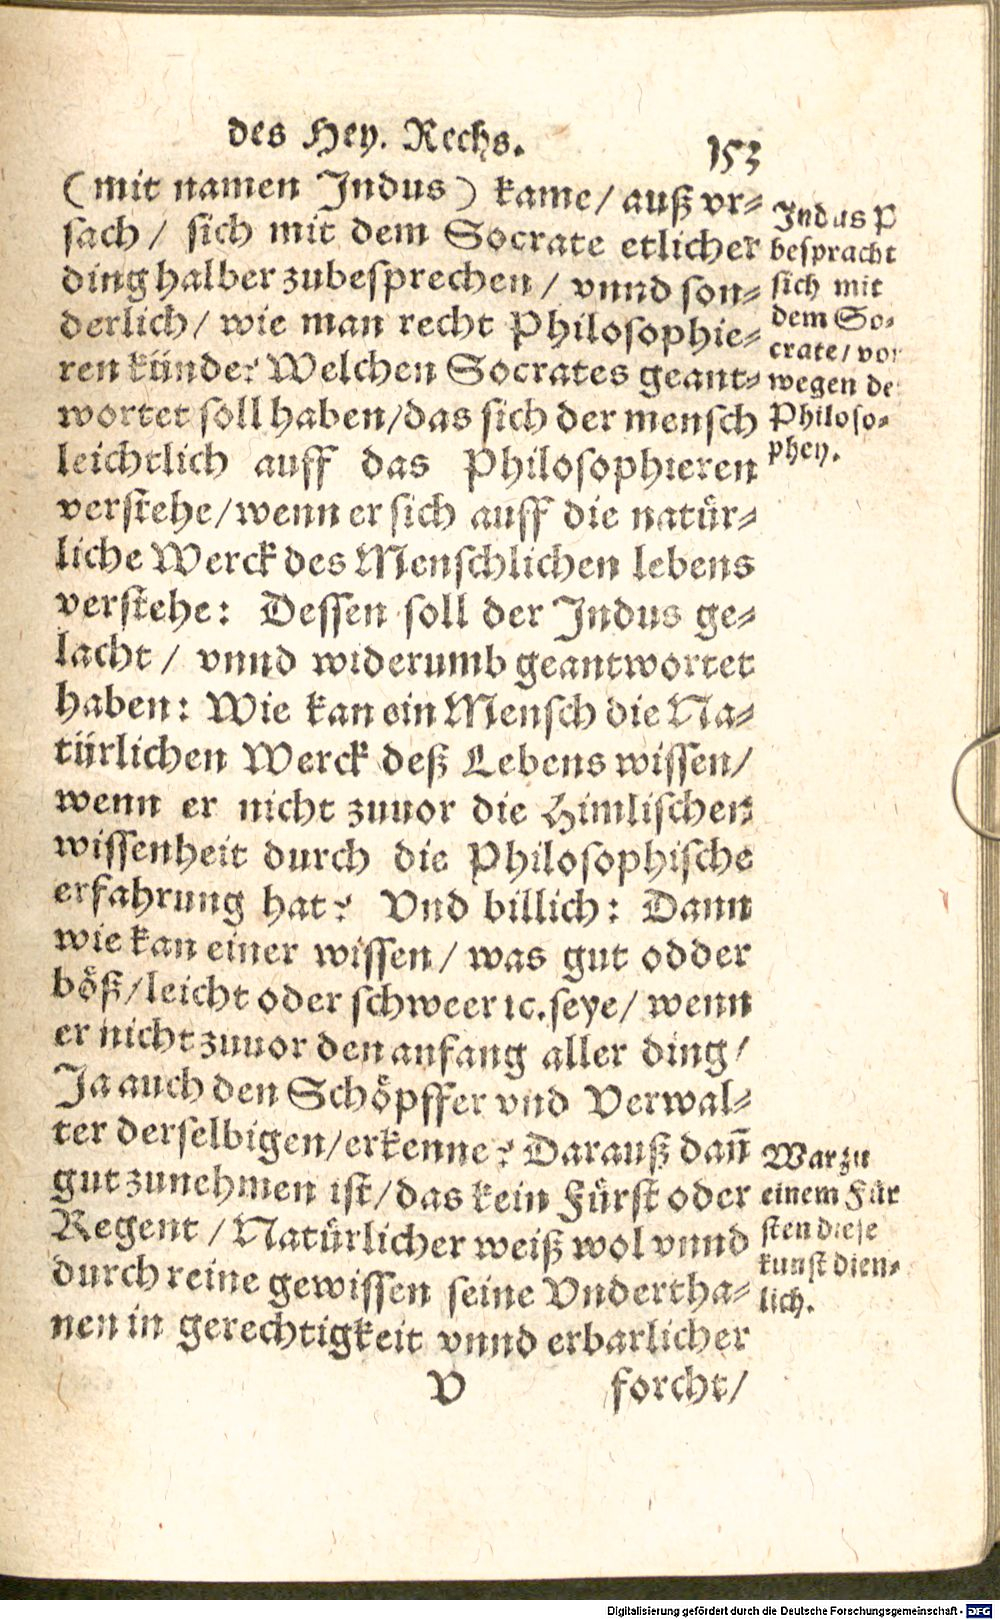 des Hey. Rechs.
153
(mit namen Indus) kame/ auß vr⸗
sach/ sich mit dem Socrate etlicher
ding halber zubesprechen/ vnnd son⸗
derlich/ wie man recht Philosophie⸗
ren künde? Welchen Socrates geant⸗
wortet soll haben/das sich der mensch
leichtlich auff das Philosophieren
verstehe/wenn er sich auff die natür⸗
liche Werck des Menschlichen lebens
verstehe: Dessen soll der Indus ge⸗
lacht/ vnnd widerumb geantwortet
haben: Wie kan ein Mensch die Na⸗
türlichen Werck deß Lebens wissen/
wenn er nicht zuuor die Himlischen
wissenheit durch die Philosophische
erfahrung hat? Vnd billich: Dann
wie kan einer wissen/ was gut odder
böß/leicht oder schweer ꝛc. seye/ wenn
er nicht zuuor den anfang aller ding/
Ja auch den Schöpffer vnd Verwal⸗
ter derselbigen/erkenne? Darauß dañ
gut zunehmen ist/das kein Fürst oder
Regent/ Natürlicher weiß wol vnnd
durch reine gewissen seine Vndertha⸗
nen in gerechtigkeit vnnd erbarlicher
V forcht/
Indus P
bespracht
sich mit
dem So⸗
crate/ von
wegen de
Philoso⸗
phey.
War zu
einem Für
sten diese
kunst dien⸗
lich.
Digitalisierung gefördert durch die Deutsche Forschungsgemeinschaft - DFG